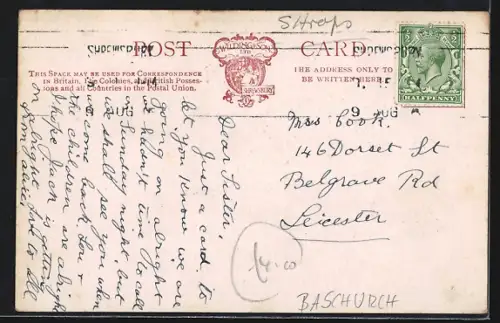 Shrops
POST CARD
WILDING & SON
LTD
SHREWSBURY
THIS SPACE MAY BE USED FOR CORRESPONDENCE
in Britain, the Colonies, and British Posses-
ions and all Countries in the Postal Union.
THE ADDRESS ONLY TO
BE WRITTEN HERE.
HALFPENNY
9 AUG
AUG
Dear Sister,
Just a card to
let you know we are
going on alright
we hadn't time to call
on Sunday night, but
we shall see you when
we come back. You &
the children are alright
I hope Jack is getting
on alright, love to all
from Alice,
Mrs Cook.
146 Dorset St
Belgrave Rd
Leicester
£4.00
BASCHURCH